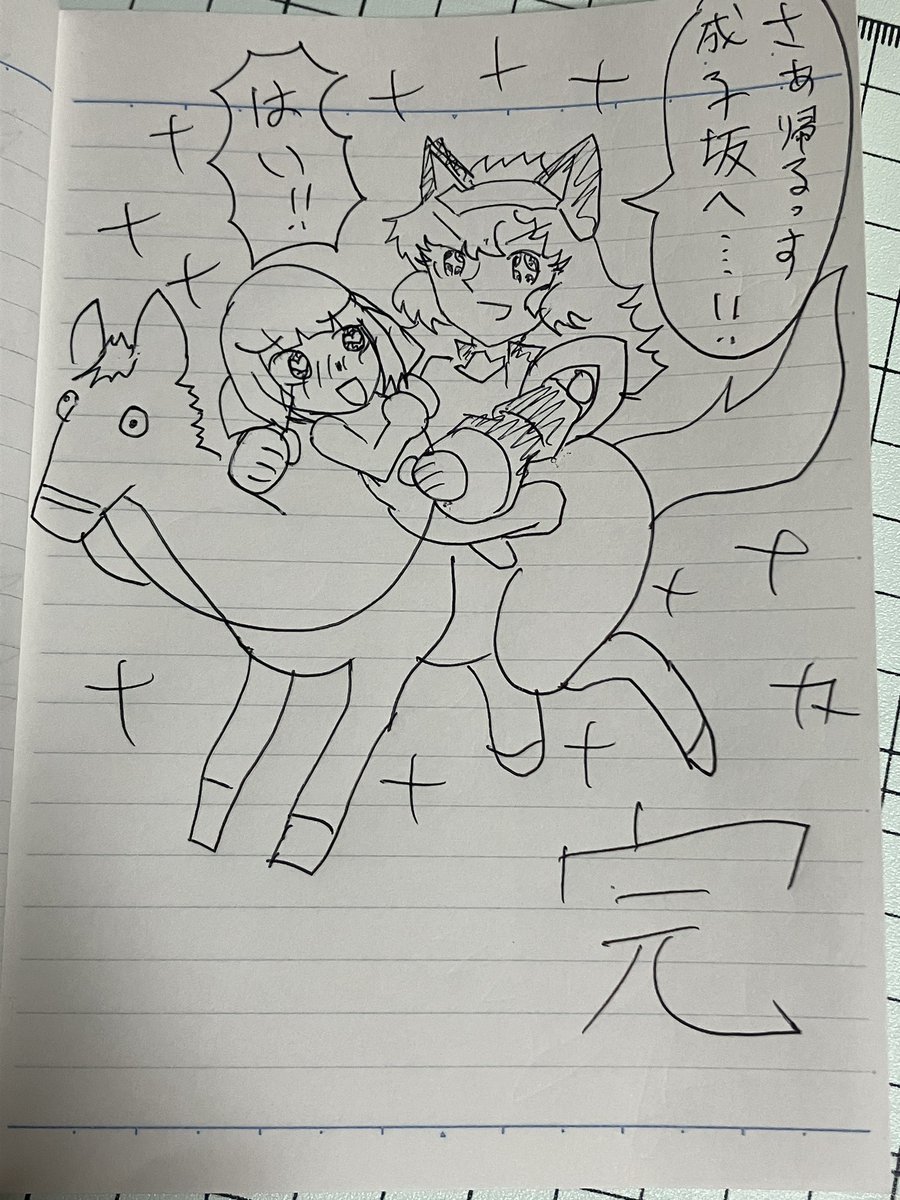 さあ帰るっす
成子坂へ…!!
はい!!
完